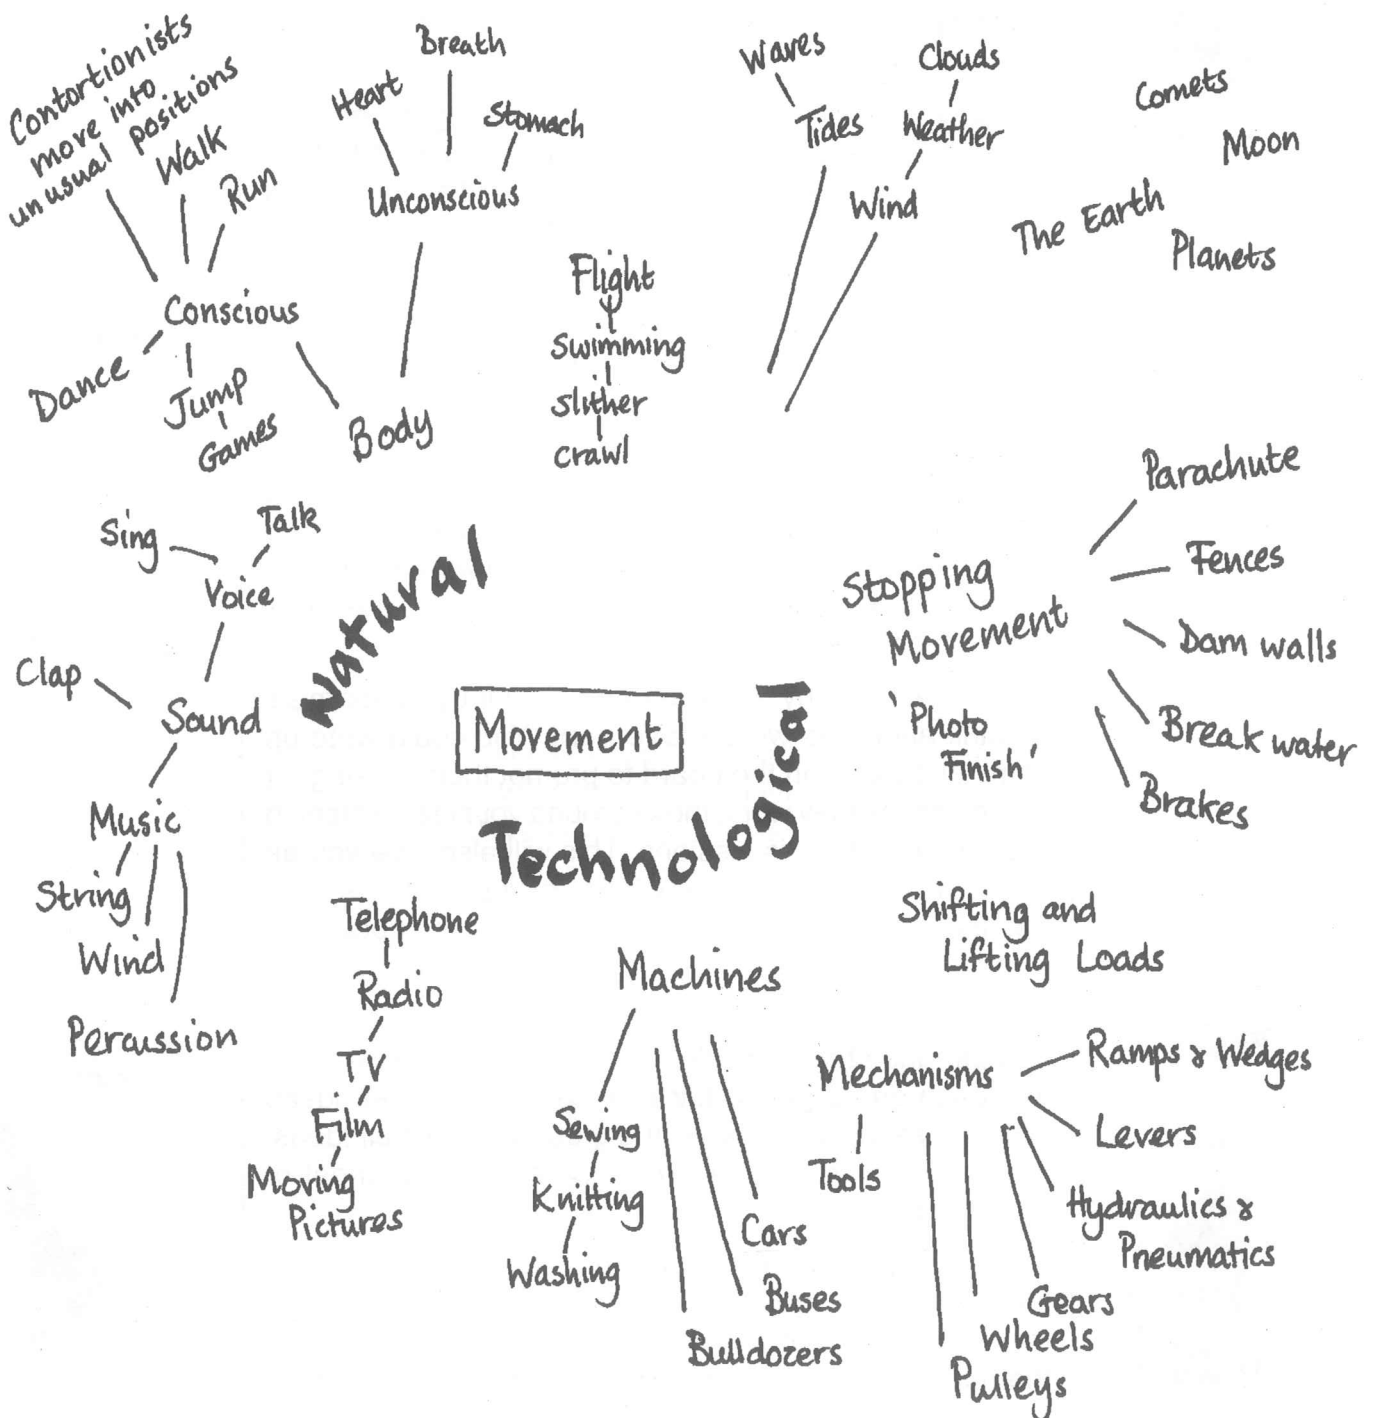 Contortionists
move into
unusual positions
Walk
Run
Conscious
Dance
Jump
Games
Body
Heart
Breath
Stomach
Unconscious
Flight
Swimming
slither
crawl
Waves
Tides
Clouds
Weather
Wind
Comets
Moon
The Earth
Planets
Sing
Talk
Voice
Clap
Sound
Music
String
Wind
Percussion
Natural
Movement
Technological
Stopping
Movement
'Photo
Finish'
Parachute
Fences
Dam walls
Break water
Brakes
Telephone
Radio
TV
Film
Moving
Pictures
Machines
Sewing
Knitting
Washing
Cars
Buses
Bulldozers
Shifting and
Lifting Loads
Mechanisms
Tools
Ramps & Wedges
Levers
Hydraulics &
Pneumatics
Gears
Wheels
Pulleys